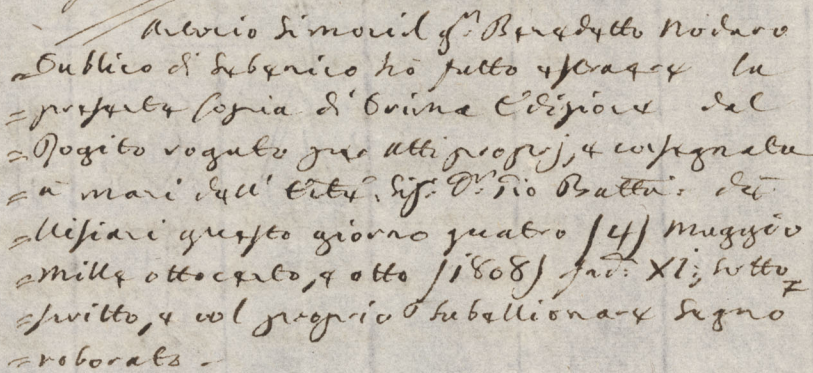 Antonio Simonil q.m Benedetto Nodaro
= Publico di Sebenico hò fatto estraere la
= presente Copia di Prima Edizione dal
= Rogito rogato per atti proprj, e consegnata
= a mani dell' Sig.r D.r Gio Batta: de
= questo giorno quatro (4) Maggio
= Mille ottocento, e otto (1808) Ind: XI:; sotto
= scritto, e col proprio tabellionare segno
= roborato.